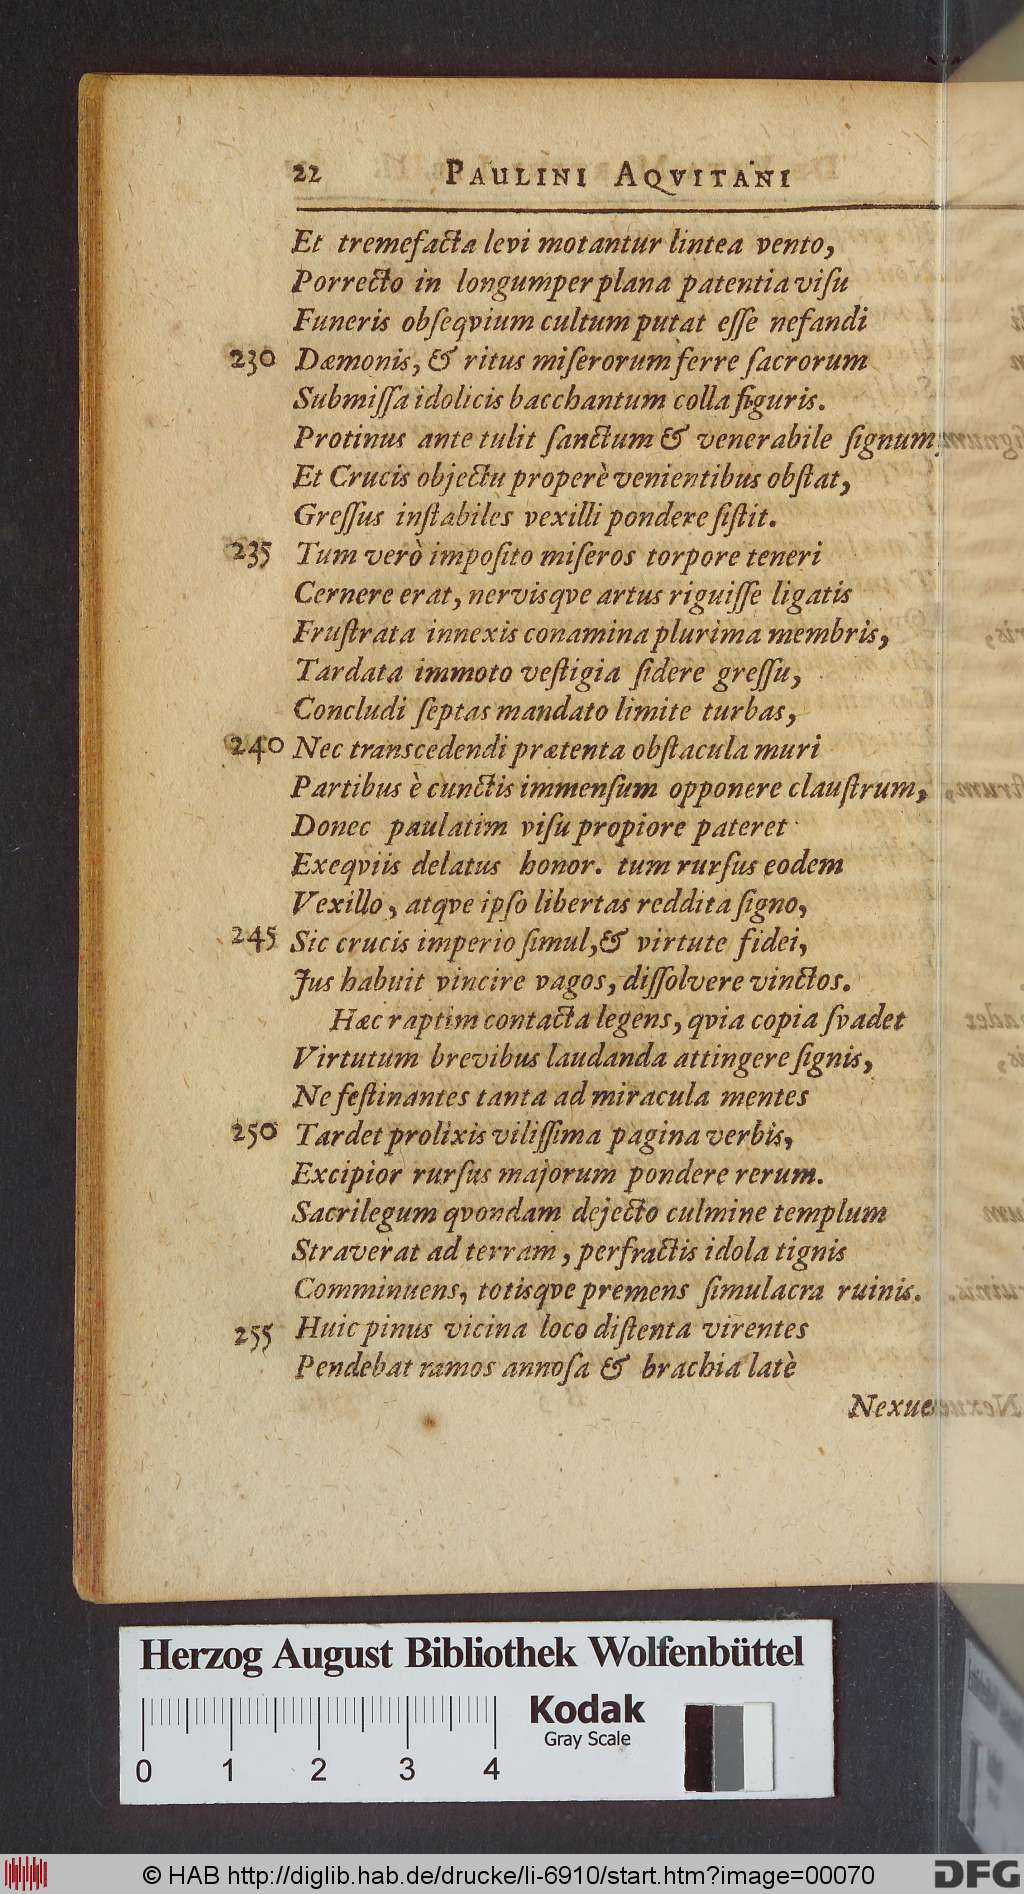 22 PAULINI AQVITANI
Et tremefacta levi motantur lintea vento,
Porrecto in longumper plana patentia viſu
Funeris obſeqvium cultum putat eſſe nefandi
230 Dæmonis, & ritus miſerorum ferre ſacrorum
Submiſſa idolicis bacchantum colla figuris.
Protinus ante tulit ſanctum & venerabile ſignum,
Et Crucis objectu properè venientibus obſtat,
Greſſus inſtabiles vexilli pondere ſiſtit.
235 Tum verò impoſito miſeros torpore teneri
Cernere erat, nervisqve artus riguiſſe ligatis
Fruſtrata innexis conamina plurima membris,
Tardata immoto veſtigia ſidere greſſu,
Concludi ſeptas mandato limite turbas,
240 Nec transcedendi prætenta obſtacula muri
Partibus è cunctis immenſum opponere clauſtrum,
Donec paulatim viſu propiore pateret
Exeqviis delatus honor. tum rurſus eodem
Vexillo, atqve ipſo libertas reddita ſigno,
245 Sic crucis imperio ſimul, & virtute fidei,
Jus habuit vincire vagos, diſſolvere vinctos.
Hæc raptim contacta legens, qvia copia ſvadet
Virtutum brevibus laudanda attingere ſignis,
Ne feſtinantes tanta ad miracula mentes
250 Tardet prolixis viliſſima pagina verbis,
Excipior rurſus majorum pondere rerum.
Sacrilegum qvondam dejecto culmine templum
Straverat ad terram, perfractis idola tignis
Comminuens, totisqve premens ſimulacra ruinis.
255 Huic pinus vicina loco diſtenta virentes
Pendebat ramos annoſa & brachia latè
Nexue
Herzog August Bibliothek Wolfenbüttel
Kodak
Gray Scale
0 1 2 3 4
© HAB http://diglib.hab.de/drucke/li-6910/start.htm?image=00070
DFG